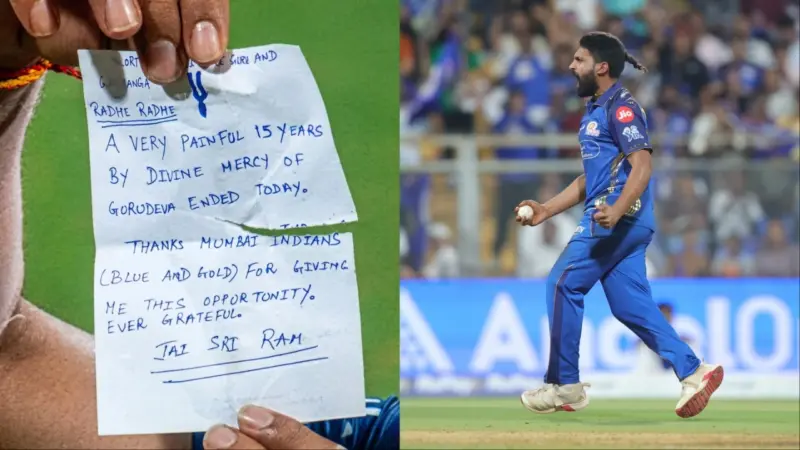 GURU AND
RADHE RADHE
A VERY PAINFUL 15 YEARS
BY DIVINE MERCY OF
GORUDEVA ENDED TODAY.
THANKS MUMBAI INDIANS
(BLUE AND GOLD) FOR GIVING
ME THIS OPPORTUNITY.
EVER GRATEFUL.
JAI SRI RAM
Jio
AngelO